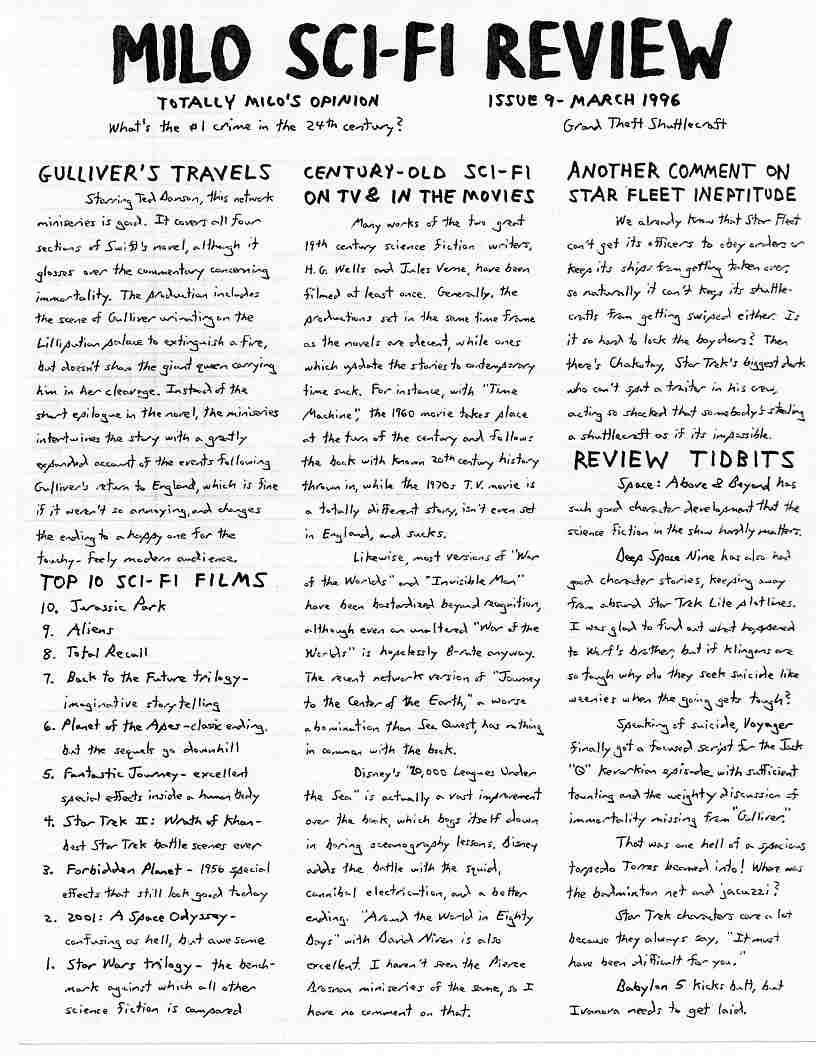 MILO SCI-FI REVIEW
TOTALLY MILO'S OPINION
ISSUE 9- MARCH 1996
What's the #1 crime in the 24th century?
Grand Theft Shuttlecraft
GULLIVER'S TRAVELS
Starring Ted Danson, this network
miniseries is good. It covers all four
sections of Swift's novel, although it
glosses over the commentary concerning
immortality. The production includes
the scene of Gulliver urinating on the
Lilliputian palace to extinguish a fire,
but doesn't show the giant queen carrying
him in her cleavage. Instead of the
short epilogue in the novel, the miniseries
intertwines the story with a greatly
expanded account of the events following
Gulliver's return to England, which is fine
if it weren't so annoying, and changes
the ending to a happy one for the
touchy-feely modern audience.
TOP 10 SCI-FI FILMS
10. Jurassic Park
9. Aliens
8. Total Recall
7. Back to the Future trilogy-
imaginative storytelling
6. Planet of the Apes-clasic ending,
but the sequels go downhill
5. Fantastic Journey- excellent
special effects inside a human body
4. Star Trek II: Wrath of Khan-
best Star Trek battle scenes ever
3. Forbidden Planet - 1956 special
effects that still look good today
2. 2001: A Space Odyssey-
confusing as hell, but awesome
1. Star Wars trilogy- the bench-
mark against which all other
science fiction is compared
CENTURY-OLD SCI-FI
ON TV & IN THE MOVIES
Many works of the two great
19th century science fiction writers,
H.G. Wells and Jules Verne, have been
filmed at least once. Generally, the
productions set in the same time frame
as the novels are decent, while ones
which update the stories to contemporary
time suck. For instance, with "Time
Machine", the 1960 movie takes place
at the turn of the century and follows
the book with known 20th century history
thrown in, while the 1970s T.V. movie is
a totally different story, isn't even set
in England, and sucks.
Likewise, most versions of "War
of the Worlds" and "Invisible Man"
have been bastardized beyond recognition,
although even an unaltered "War of the
Worlds" is hopelessly B-rate anyway.
The recent network version of "Journey
to the Center of the Earth," a worse
abomination than Sea Quest, has nothing
in common with the book.
Disney's "20,000 Leagues Under
the Sea" is actually a vast improvement
over the book, which bogs itself down
in boring oceanography lessons. Disney
adds the battle with the squid,
cannibal electrocution, and a better
ending. "Around the World in Eighty
Days" with David Niven is also
excellent. I haven't seen the Pierce
Brosnan miniseries of the same, so I
have no comment on that.
ANOTHER COMMENT ON
STAR FLEET INEPTITUDE
We already know that Star Fleet
can't get its officers to obey orders or
keep its ships from getting taken over,
so naturally it can't keep its shuttle-
crafts from getting swiped either. Is
it so hard to lock the bay doors? Then
there's Chakotay, Star Trek's biggest dork
who can't spot a traitor in his crew,
acting so shocked that somebody's stealing
a shuttlecraft as if its impossible.
REVIEW TIDBITS
Space: Above & Beyond has
such good character development that the
science fiction in the show hardly matters.
Deep Space Nine has also had
good character stories, keeping away
from absurd Star Trek Lite plotlines.
I was glad to find out what happened
to Worf's brother, but if Klingons are
so tough why do they seek suicide like
weenies when the going gets tough?
Speaking of suicide, Voyager
finally got a focused script for the Jack
"Q" Kevorkian episode, with sufficient
taunting and the weighty discussion of
immortality missing from "Gulliver."
That was one hell of a spacious
torpedo Torres beamed into! Where was
the badminton net and jacuzzi?
Star Trek characters care a lot
because they always say, "It must
have been difficult for you."
Babylon 5 kicks butt, but
Ivanova needs to get laid.